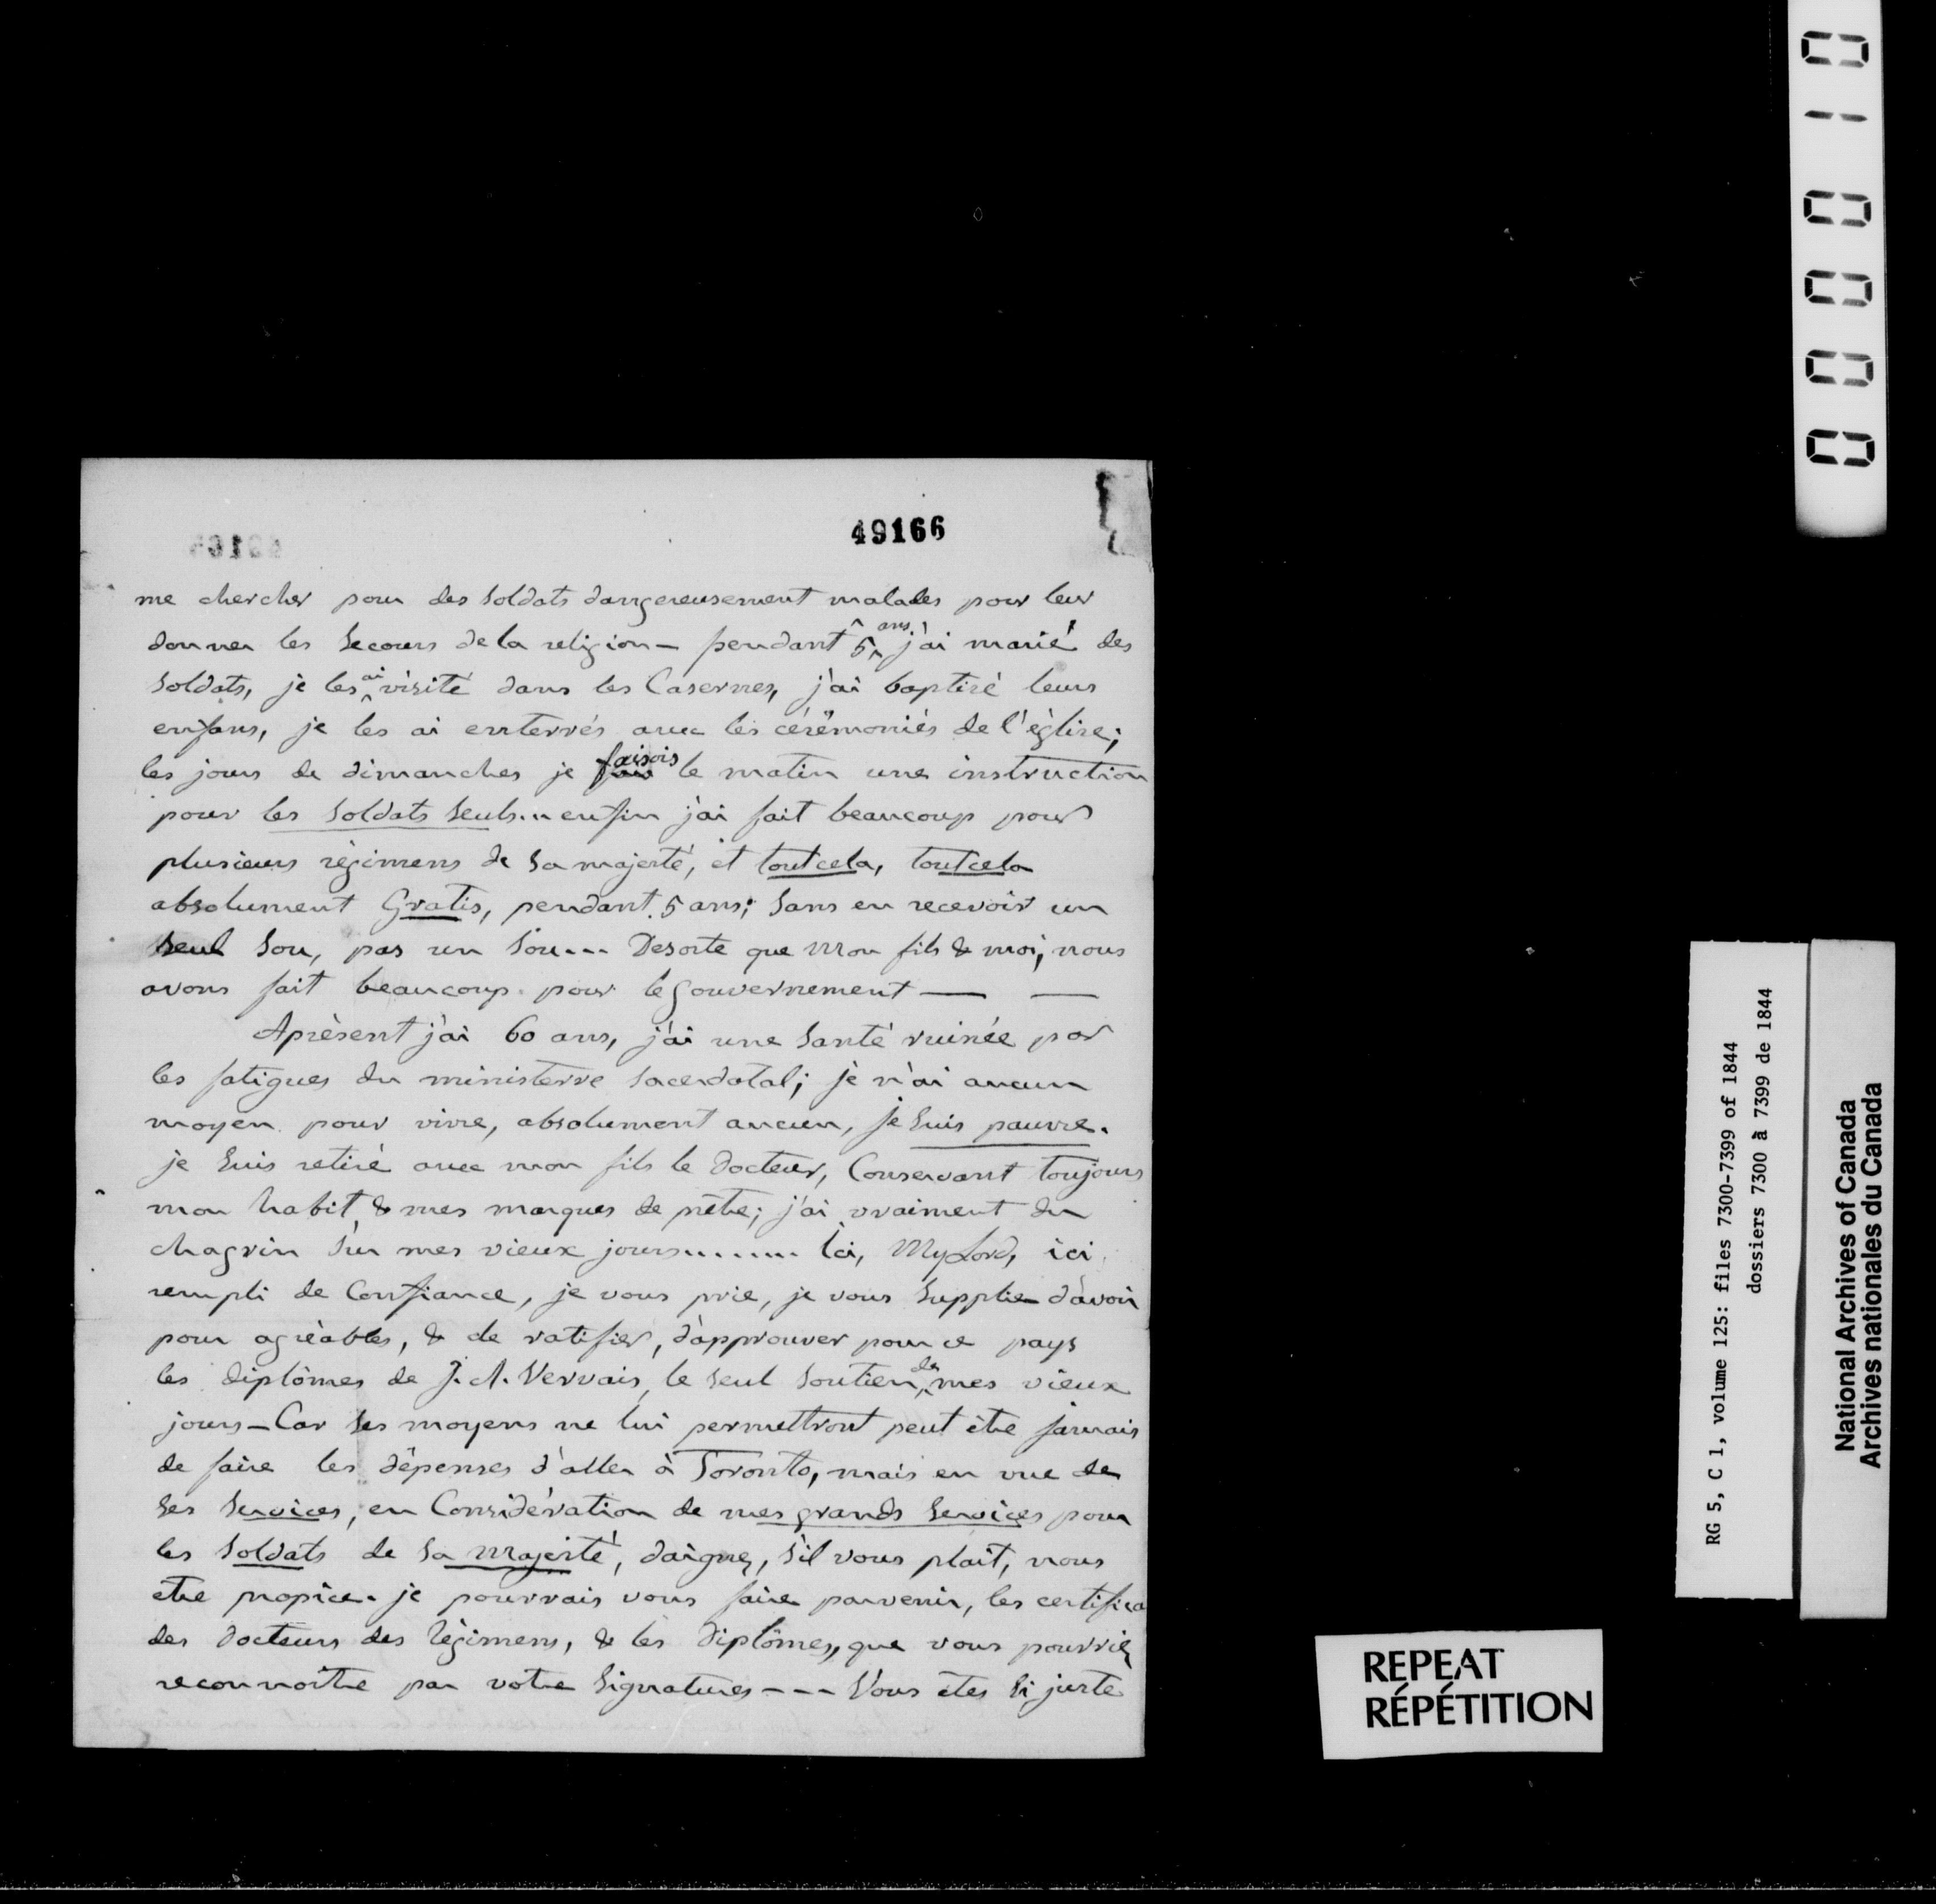 49166
me chercher pour des soldats dangereusement malades pour leur
donner les secours de la religion — pendant 5 ans j'ai marié des
soldats, je les ai visité dans les Casernes, j'ai baptisé leurs
enfans, je les ai enterrés avec les cérémoniés de l'église;
les jours de dimanches je faisois le matin une instruction
pour les soldats seuls... enfin j'ai fait beaucoup pour
plusieurs régimens de sa majesté, et tout cela, tout cela
absolument Gratis, pendant 5 ans; sans en recevoir un
seul sou, pas un sou --- Desorte que Mon fils & moi, nous
avons fait beaucoup pour le gouvernement — —
Aprèsent j'ai 60 ans, j'ai une santé ruinée par
les fatigues du ministerre sacerdotal; je n'ai aucun
moyen pour vivre, absolument aucun, je suis pauvre.
je suis retiré avec mon fils le docteur, Conservant toujours
mon habit & mes marques de prêtre; j'ai vraiment du
chagrin sur mes vieux jours....... Ici, My Lord, ici
rempli de Confiance, je vous prie, je vous supplie d'avoir
pour agréables, & de ratifier, d'approuver pour ce pays
les diplômes de J. A. Vervais, le seul soutien de mes vieux
jours — Car ses moyens ne lui permettront peut être jamais
de faire les dépenses d'aller à Toronto, mais en vue de
ses services, en Considération de mes grands services pour
les soldats de sa Majesté, daignez, s'il vous plait, nous
etre propice. je pourrais vous faire parvenir, les certifica
des docteurs des régimens, & les diplômes, que vous pourriez
reconnoître par votre signatures --- Vous êtes si juste
0 0 0 0 1 0
RG 5, C 1, volume 125: files 7300-7399 of 1844
dossiers 7300 à 7399 de 1844
National Archives of Canada
Archives nationales du Canada
REPEAT
RÉPÉTITION